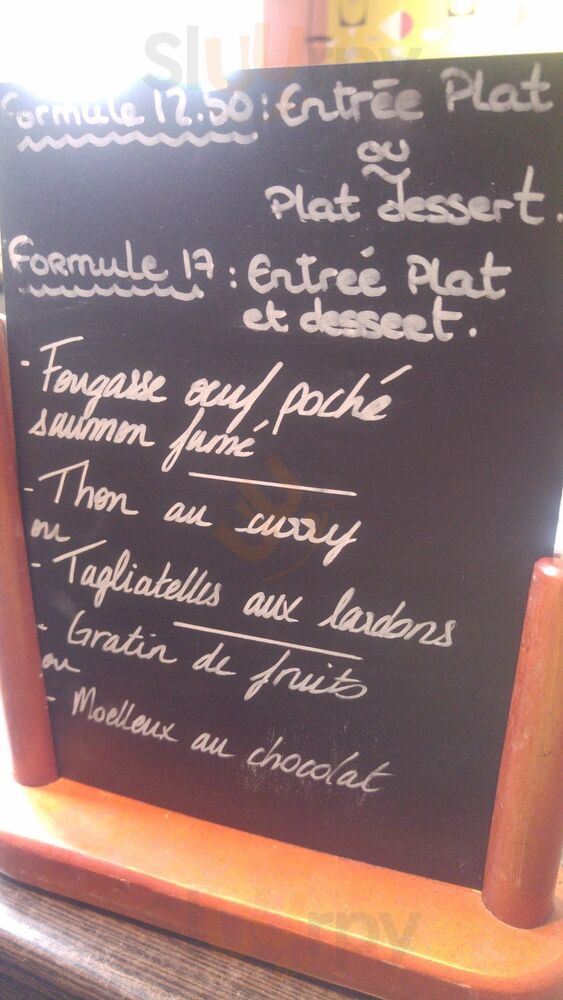 Slurrpy
Formule 12.50 : Entrée Plat
ou
Plat dessert.
Formule 17 : Entreé Plat
et dessert.
- Fougasse oeuf poché
saumon fumé
- Thon au curry
ou
- Tagliatelles aux lardons
- Gratin de fruits
ou
- Moelleux au chocolat
Slurrpy